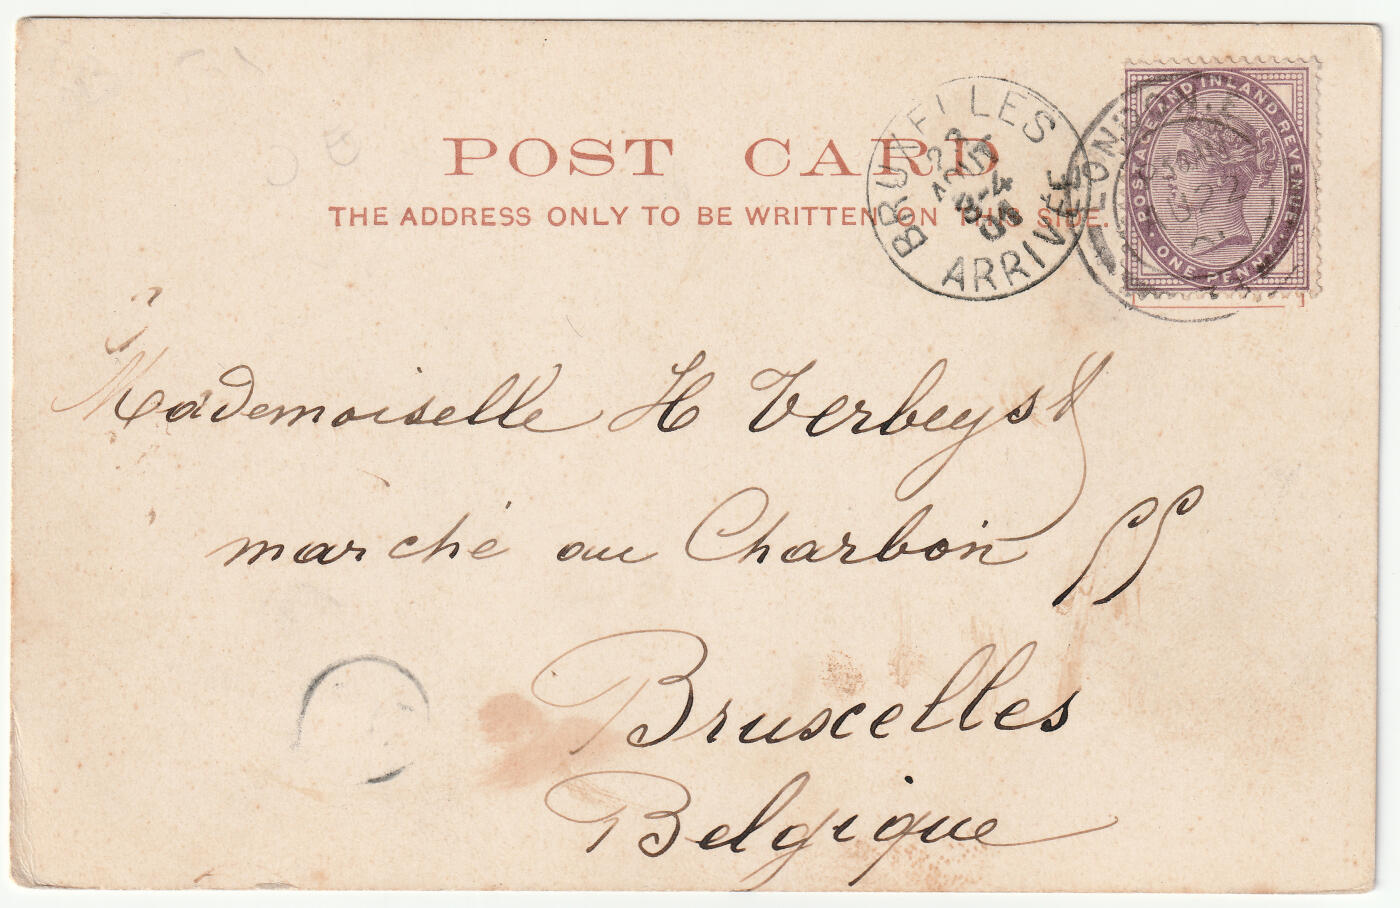 POST CARD
THE ADDRESS ONLY TO BE WRITTEN ON THIS SIDE.
BRUXELLES
22
AOUT
3-4
ARRIVEE
LOND
POSTAGE AND INLAND REVENUE
ONE PENNY
Mademoiselle H Verbeyst
marché au Charbon
Bruxelles
Belgique